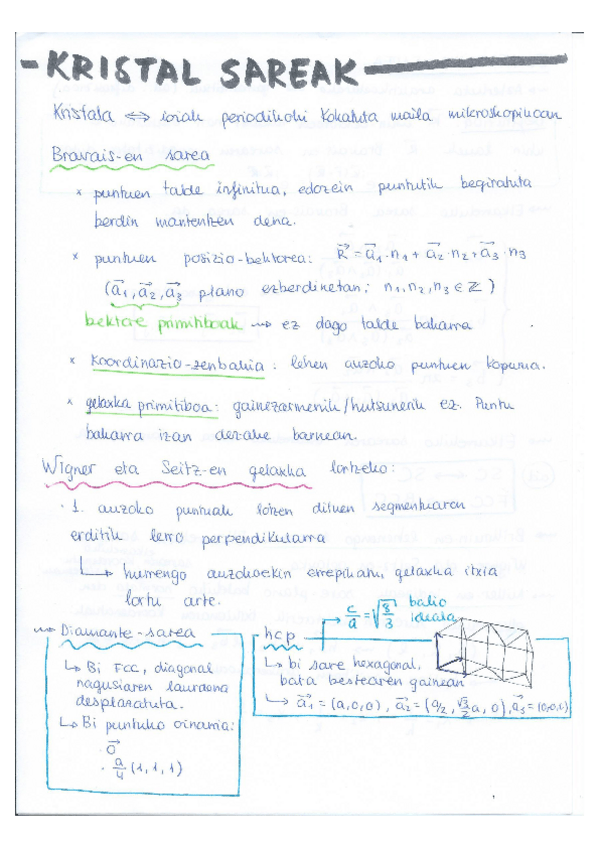 - KRISTAL SAREAK -
Kristala ⟺ ioiak periodikoki kokatuta maila mikroskopikoan
Bravais-en sarea
* puntuen talde infinitua, edozein puntutik begiratuta
berdin mantentzen dena.
* puntuen posizio-bektorea: R⃗ = a⃗₁·n₁ + a⃗₂·n₂ + a⃗₃·n₃
(a⃗₁, a⃗₂, a⃗₃ plano ezberdinetan; n₁, n₂, n₃ ∈ ℤ)
bektore primitiboak ⇝ ez dago talde bakarra
* Koordinazio-zenbakia: lehen auzoko puntuen kopurua.
* gelaxka primitiboa: gainezarmenik/hutsunerik ez. Puntu
bakarra izan dezake barnean.
Wigner eta Seitz-en gelaxka lortzeko:
· 1. auzoko puntuak lotzen dituen segmentuaren
erditik lerro perpendikularra
↳ hurrengo auzokoekin errepikatu, gelaxka itxia
lortu arte.
⇝ Diamante-sarea
↳ Bi FCC, diagonal
nagusiaren laurdena
desplazatuta.
↳ Bi puntuko oinarria:
· 0⃗
· a/4 (1,1,1)
hcp → c/a = √(8/3) balio
ideala
↳ bi sare hexagonal,
bata bestearen gainean
↳ a⃗₁ = (a,0,0), a⃗₂ = (a/2, √3/2 a, 0), a⃗₃ = (0,0,c)